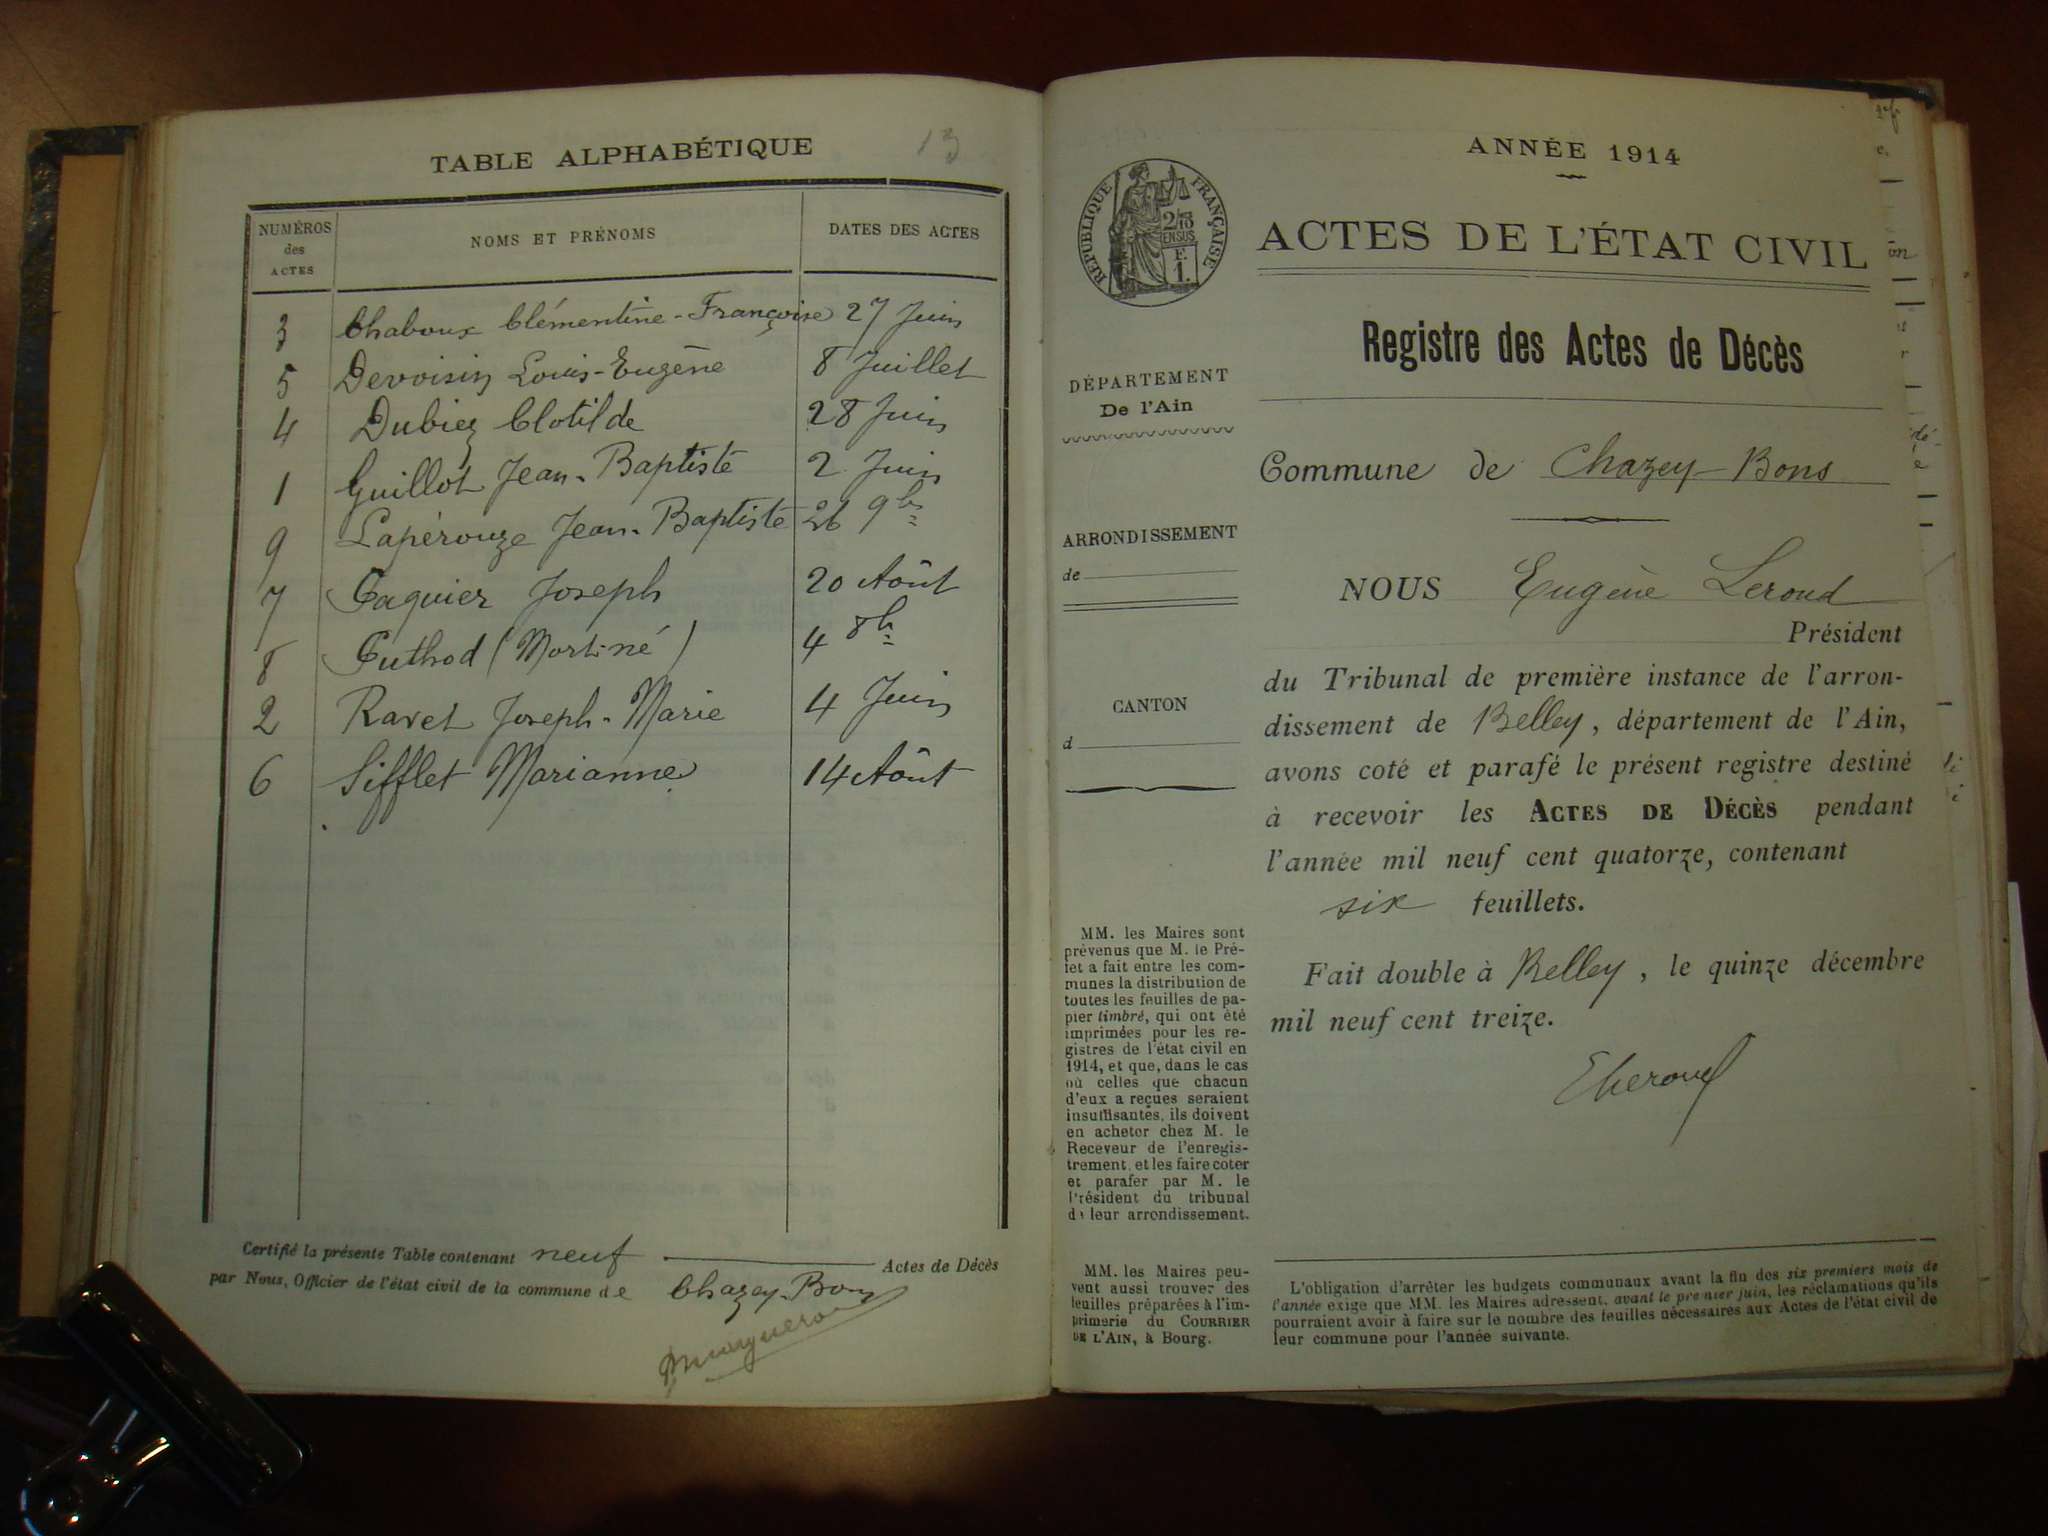 TABLE ALPHABÉTIQUE
13
NUMÉROS
des
ACTES
NOMS ET PRÉNOMS
DATES DES ACTES
3 Chaboux Clémentine-Françoise 27 Juin
5 Devoisin Louis-Eugène 8 Juillet
4 Dubiez Clotilde 28 Juin
1 Guillot Jean-Baptiste 2 Juin
9 Lapérouze Jean-Baptiste 26 9bre
7 Paquier Joseph 20 Août
8 Puthod (Mort-né) 4 8bre
2 Ravet Joseph-Marie 4 Juin
6 Sifflet Marianne 14 Août
Certifié la présente Table contenant neuf Actes de Décès
par Nous, Officier de l'état civil de la commune de Chazey-Bons
ANNÉE 1914
RÉPUBLIQUE FRANÇAISE
2/10
EN SUS
F.
1.
ACTES DE L'ÉTAT CIVIL
Registre des Actes de Décès
DÉPARTEMENT
De l'Ain
Commune de Chazey-Bons
ARRONDISSEMENT
de
NOUS Eugène Leroud
Président
du Tribunal de première instance de l'arron-
dissement de Belley, département de l'Ain,
avons coté et parafé le présent registre destiné
à recevoir les ACTES DE DÉCÈS pendant
l'année mil neuf cent quatorze, contenant
six feuillets.
Fait double à Belley, le quinze décembre
mil neuf cent treize.
ELeroud
CANTON
d
MM. les Maires sont
prévenus que M. le Pré-
fet a fait entre les com-
munes la distribution de
toutes les feuilles de pa-
pier timbré, qui ont été
imprimées pour les re-
gistres de l'état civil en
1914, et que, dans le cas
où celles que chacun
d'eux a reçues seraient
insuffisantes, ils doivent
en acheter chez M. le
Receveur de l'enregis-
trement, et les faire coter
et parafer par M. le
Président du tribunal
de leur arrondissement.
MM. les Maires peu-
vent aussi trouver des
feuilles préparées à l'im-
primerie du COURRIER
DE L'AIN, à Bourg.
L'obligation d'arrêter les budgets communaux avant la fin des six premiers mois de
l'année exige que MM. les Maires adressent, avant le premier juin, les réclamations qu'ils
pourraient avoir à faire sur le nombre des feuilles nécessaires aux Actes de l'état civil de
leur commune pour l'année suivante.